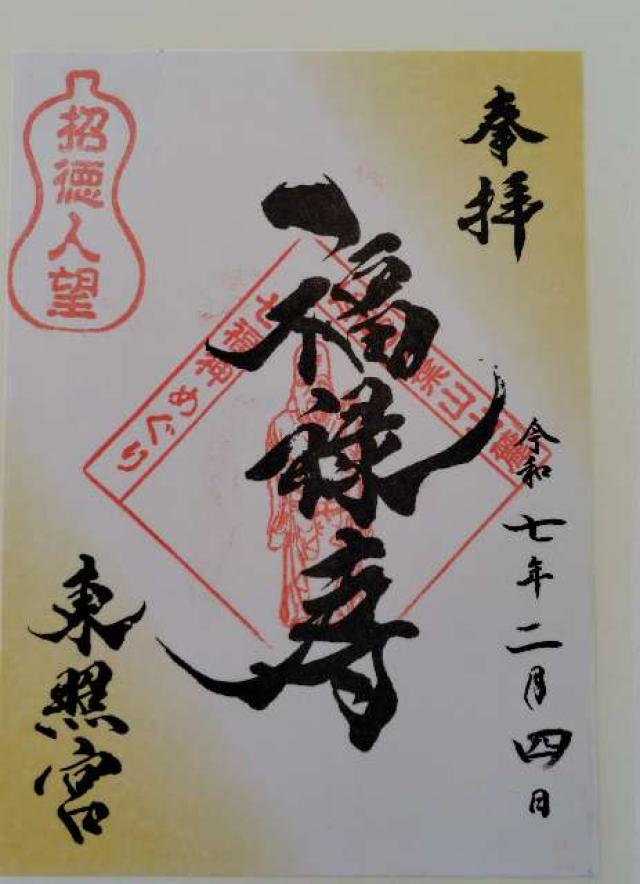 奉拝
令和七年二月四日
福禄寿
東照宮
招徳人望
七福神めぐり